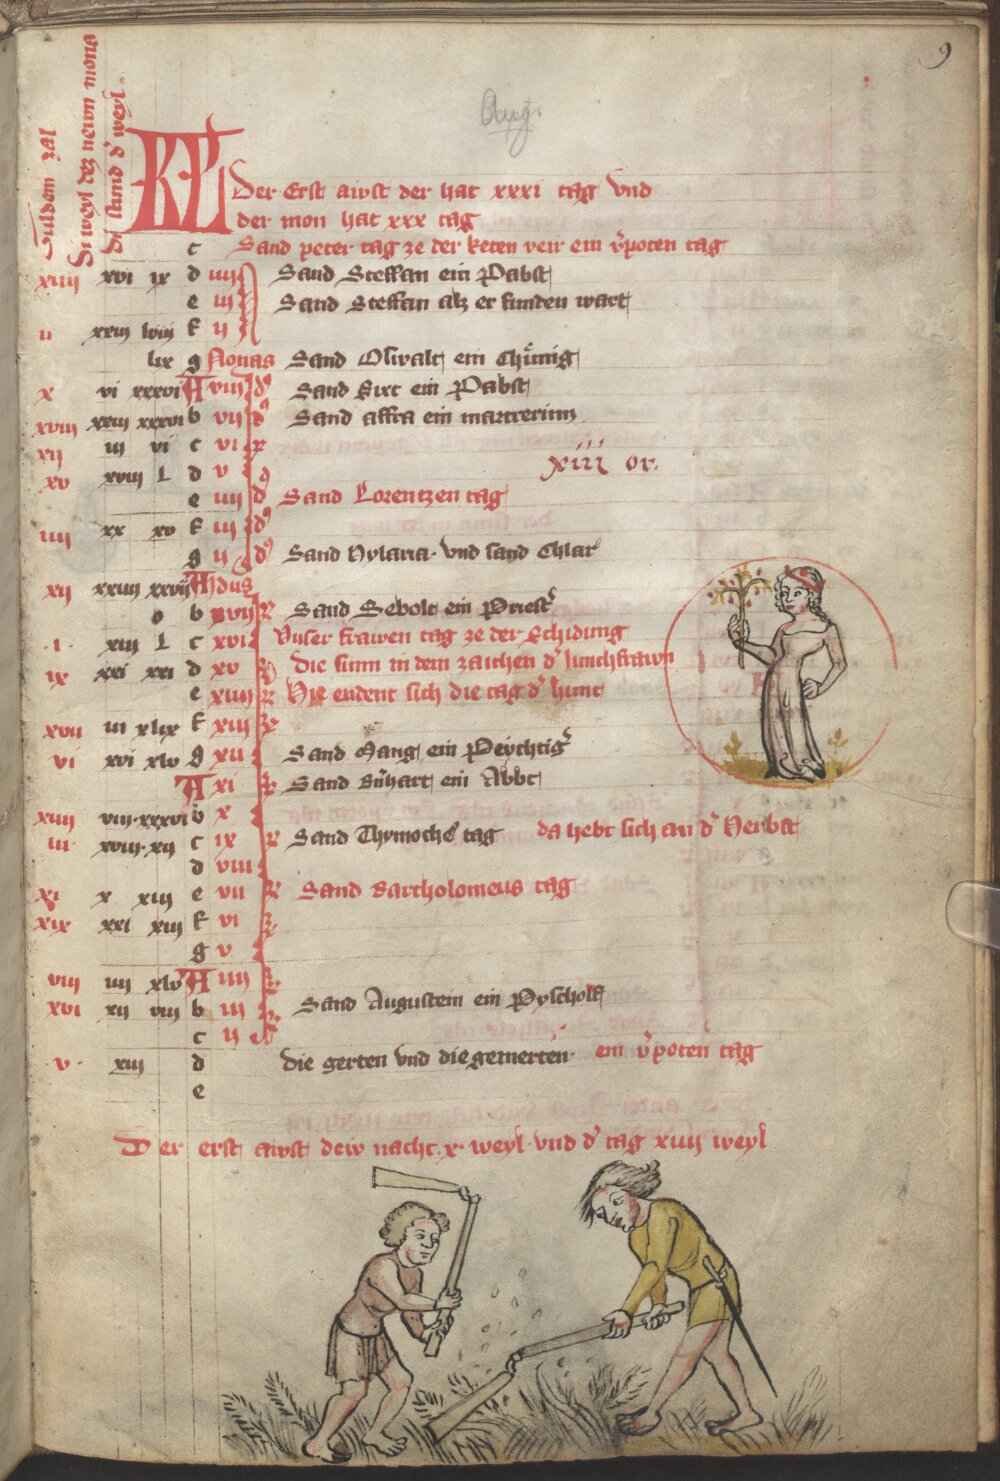 9
Aug.
Guldem zal
Di weyl dez newn mons
Di stund d' weyl
KL Der Erst aust der hat xxxi tag vnd
der mon hat xxx tag
c Sand peter tag ze der keten veir ein v'poten tag
xiiii xvi ix d iiii Sand Steffan ein Pabst
e iii Sand Steffan alz er funden wart
ii xxiii lviii f ii
lix g Nonas Sand Oswalt ein Chünig
x vi xxxvi A viii Id9 Sand Sixt ein Pabst
xviii xxiii xxxvi b vii Id9 Sand affra ein martrerinn
vii iii vi c vi
xv xviii L d v xiii or.
e iiii d9 Sand Lorentzen tag
iiii xx xv f iii Id9
g ii d9 Sand Hylaria vnd sand Chlar'
xii xxiiii xxvii A Idus
o b xvii k Sand Sebolt ein Priest'
i xiii L c xvi Vnser frawen tag ze der schidung
ix xxi xxi d xv k die sunn in dem zaichen d' Junchfrawn
e xiiii k Hie endent sich die tag d' hunt
xvii iii xlix f xiii k
vi xvi xlv g xii Sand Mang ein Peychtig'
A xi k Sand Bn'hart ein Abbt
xiiii viii xxxvi b x
iii xviii xii c ix k Sand Thymothe' tag da hebt sich an d' Herbst
d viii
xi x xiii e vii k Sand Bartholomeus tag
xix xxi xiii f vi k
g v
viii iiii xlv A iiii k
xvi xii viii b iii k Sand Augustein ein Pyscholf
c ii
v xiii d die gerten vnd die gemerten ein v'poten tag
e
Der erst aust dew nacht x weyl vnd d' tag xiiii weyl